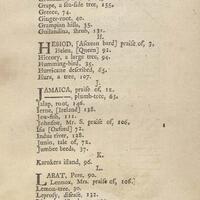 Grape, a sea-side tree, 155.
Greece, 74.
Ginger-root, 40.
Grampian hills, 35.
Guilandina, shrub, 131.
H.
HESIOD, [Ascrean bard] praise of, 3.
Helen, [Queen] 92.
Hiccory, a large tree, 94.
Humming-bird, 35.
Hurricane described, 65.
Hura, a tree, 107.
J.
JAMAICA, praise of, 12.
plumb-tree, 63.
Jalap, root, 146.
Ierne, [Ireland] 128.
Jew-fish, 111.
Johnson, Mr. S. praise of, 106.
Isis [Oxford] 72.
Indus river, 128.
Junio, tale of, 72.
Jumbee beeds, 37.
K.
Karukera island, 96.
L.
LABAT, Pere, 90.
Lennox, Mrs. praise of, 106.
Lemon-tree, 30.
Leprosy, disease, 132.